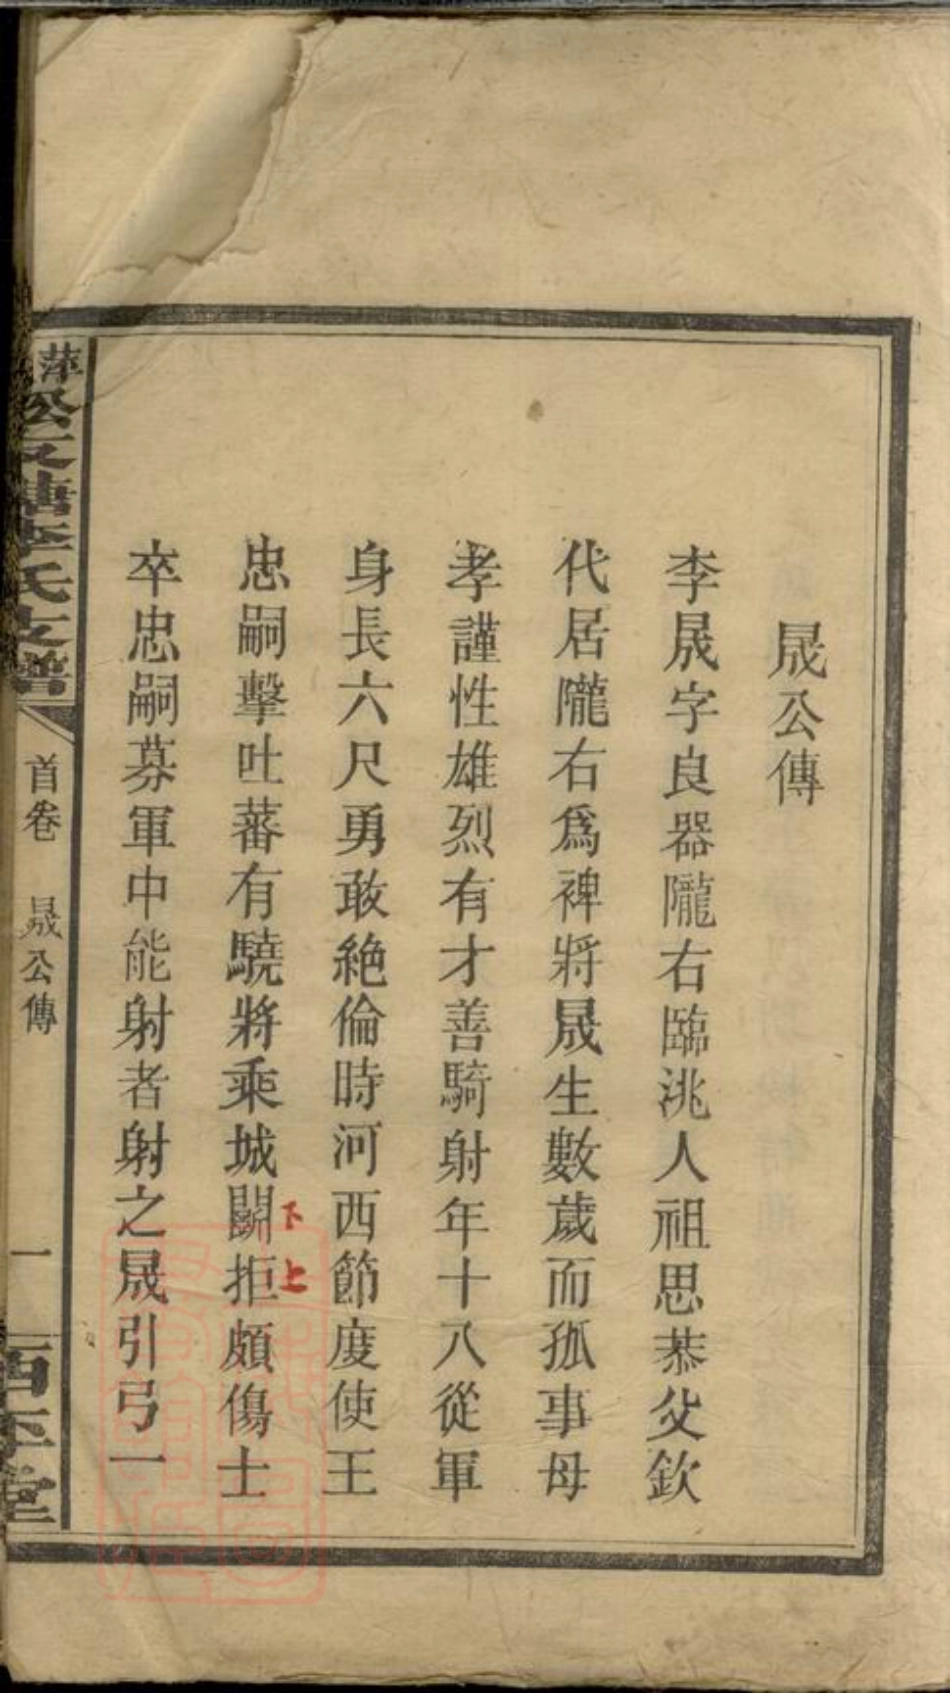 晟公傳
李晟字良器隴右臨洮人祖思恭父欽
代居隴右爲裨將晟生數歲而孤事母
孝謹性雄烈有才善騎射年十八從軍
身長六尺勇敢絕倫時河西節度使王
忠嗣擊吐蕃有驍將乘城鬬拒頗傷士
下上
卒忠嗣募軍中能射者射之晟引弓一
萍
塘李氏支譜
首卷
晟公傳
一
西平堂